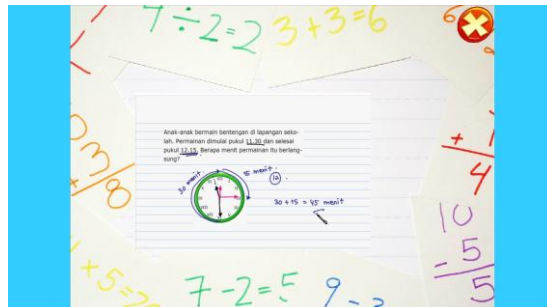 7 ÷ 2 = 2
3 + 3 = 6
6
Anak-anak bermain bentengan di lapangan seko-
lah. Permainan dimulai pukul 11.30 dan selesai
pukul 12.15. Berapa menit permainan itu berlang-
sung?
30 menit
15 menit
12
30 + 15 = 45 menit
+ 1
4
3
+
8
10
- 5
5
+ 5 = 20
7 - 2 = 5
9 - 3